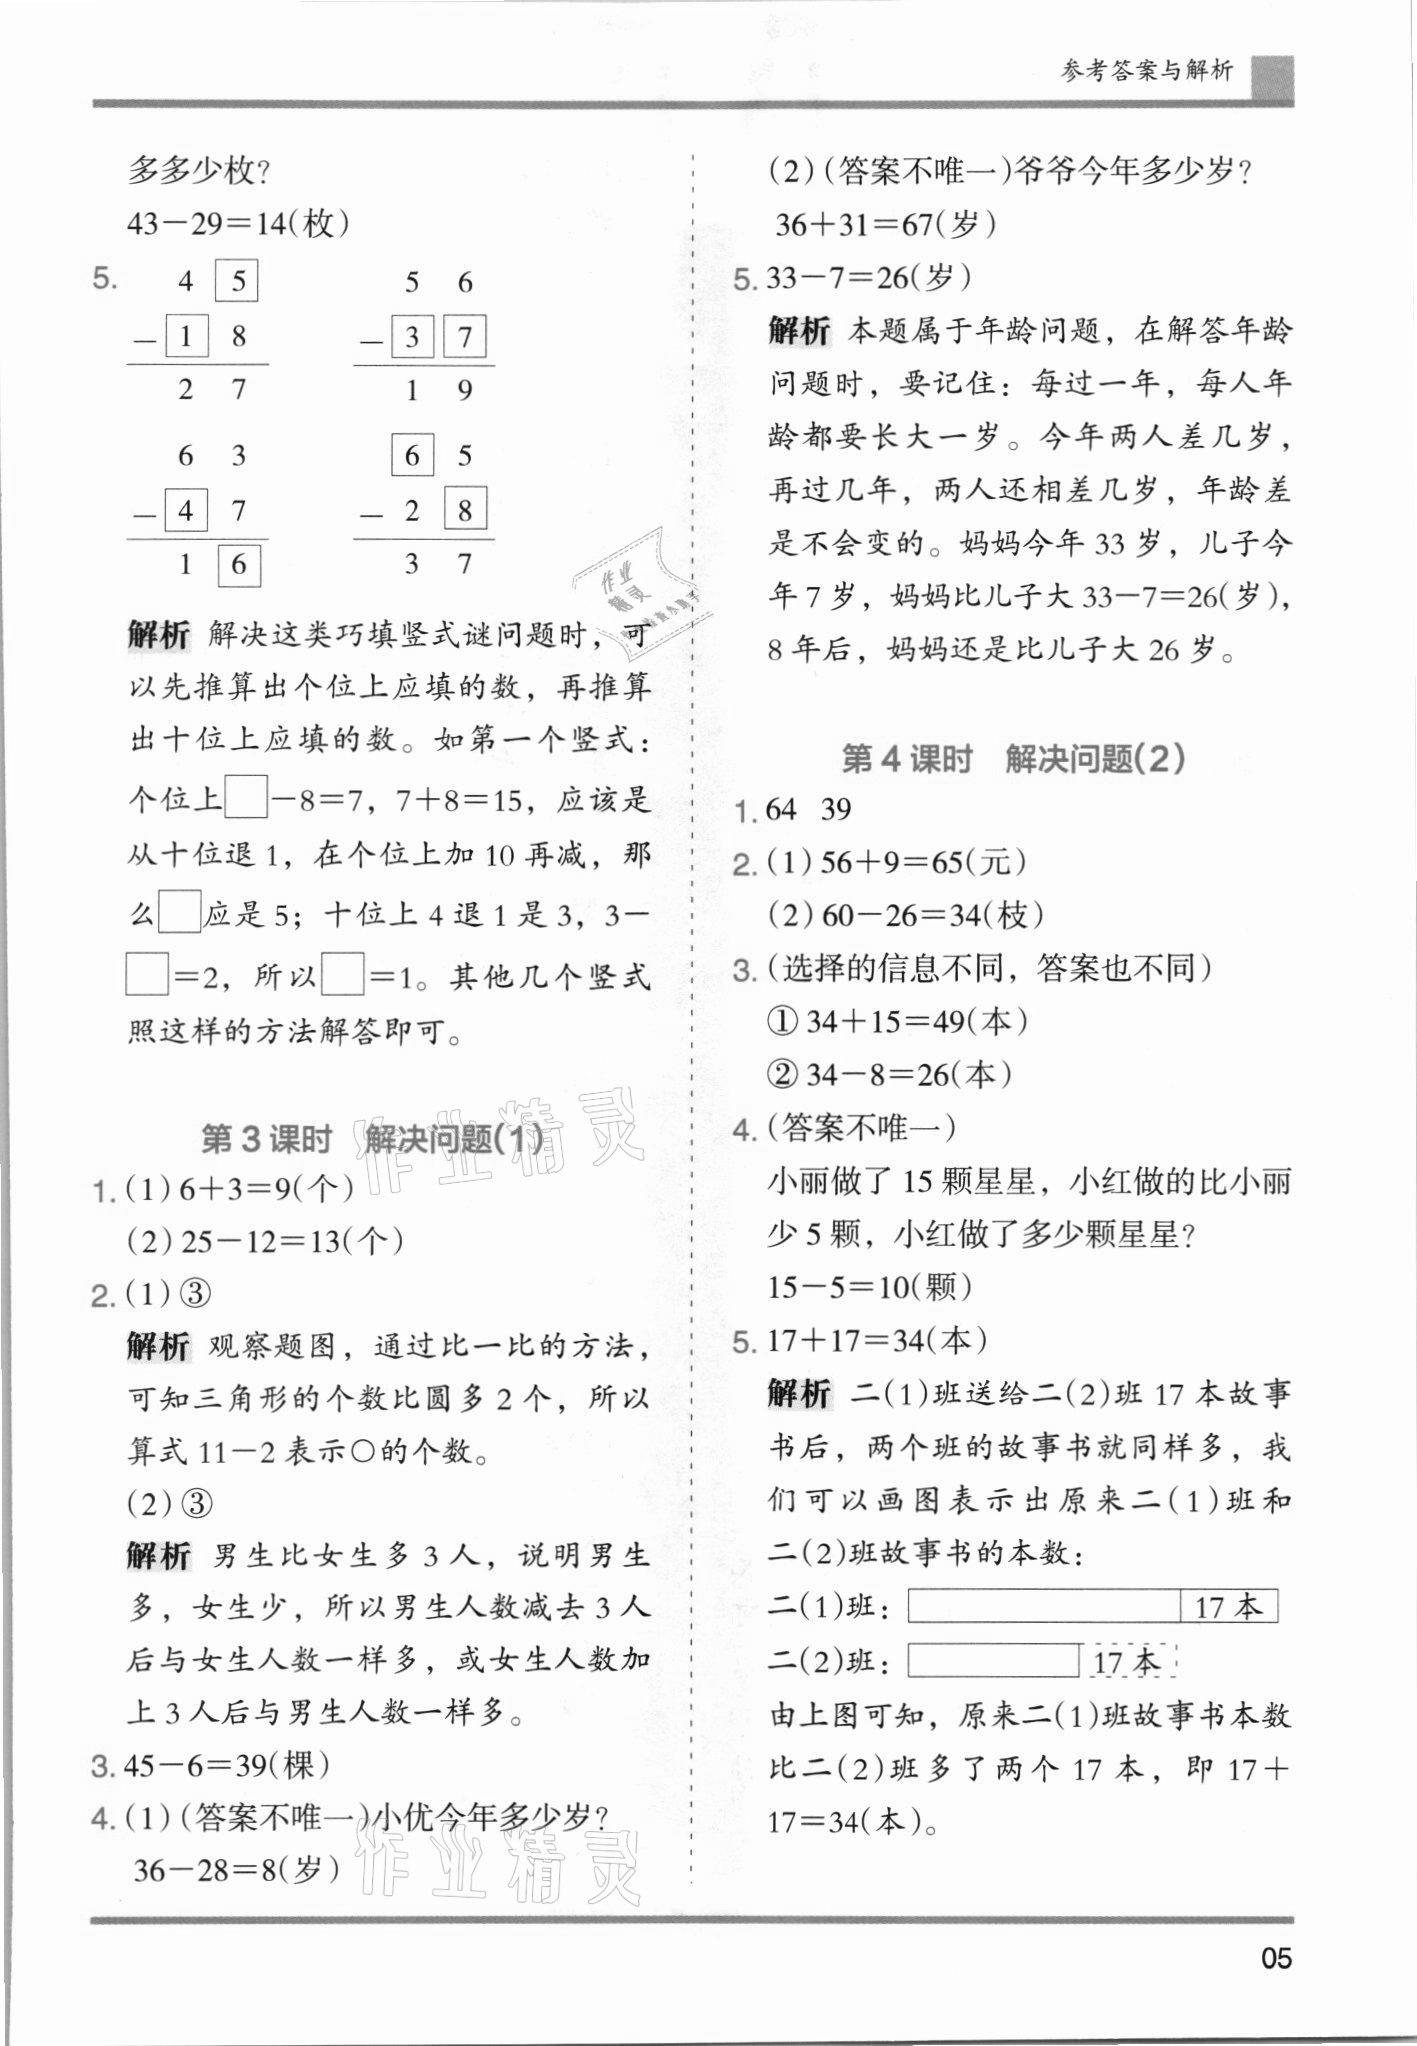 参考答案与解析
多多少枚？
43－29＝14(枚)
5. 4 5 5 6
－ 1 8 － 3 7
2 7 1 9
6 3 6 5
－ 4 7 － 2 8
1 6 3 7
解析 解决这类巧填竖式谜问题时，可
以先推算出个位上应填的数，再推算
出十位上应填的数。如第一个竖式：
个位上□－8＝7，7＋8＝15，应该是
从十位退1，在个位上加10再减，那
么□应是5；十位上4退1是3，3－
□＝2，所以□＝1。其他几个竖式
照这样的方法解答即可。
第3课时 解决问题(1)
1. (1)6＋3＝9(个)
(2)25－12＝13(个)
2. (1)③
解析 观察题图，通过比一比的方法，
可知三角形的个数比圆多2个，所以
算式11－2表示○的个数。
(2)③
解析 男生比女生多3人，说明男生
多，女生少，所以男生人数减去3人
后与女生人数一样多，或女生人数加
上3人后与男生人数一样多。
3. 45－6＝39(棵)
4. (1)(答案不唯一)小优今年多少岁？
36－28＝8(岁)
(2)(答案不唯一)爷爷今年多少岁？
36＋31＝67(岁)
5. 33－7＝26(岁)
解析 本题属于年龄问题，在解答年龄
问题时，要记住：每过一年，每人年
龄都要长大一岁。今年两人差几岁，
再过几年，两人还相差几岁，年龄差
是不会变的。妈妈今年33岁，儿子今
年7岁，妈妈比儿子大33－7＝26(岁)，
8年后，妈妈还是比儿子大26岁。
第4课时 解决问题(2)
1. 64 39
2. (1)56＋9＝65(元)
(2)60－26＝34(枝)
3. (选择的信息不同，答案也不同)
①34＋15＝49(本)
②34－8＝26(本)
4. (答案不唯一)
小丽做了15颗星星，小红做的比小丽
少5颗，小红做了多少颗星星？
15－5＝10(颗)
5. 17＋17＝34(本)
解析 二(1)班送给二(2)班17本故事
书后，两个班的故事书就同样多，我
们可以画图表示出原来二(1)班和
二(2)班故事书的本数：
二(1)班： 17本
二(2)班： 17本
由上图可知，原来二(1)班故事书本数
比二(2)班多了两个17本，即17＋
17＝34(本)。
作业精灵
作业精灵
作业
精灵
05